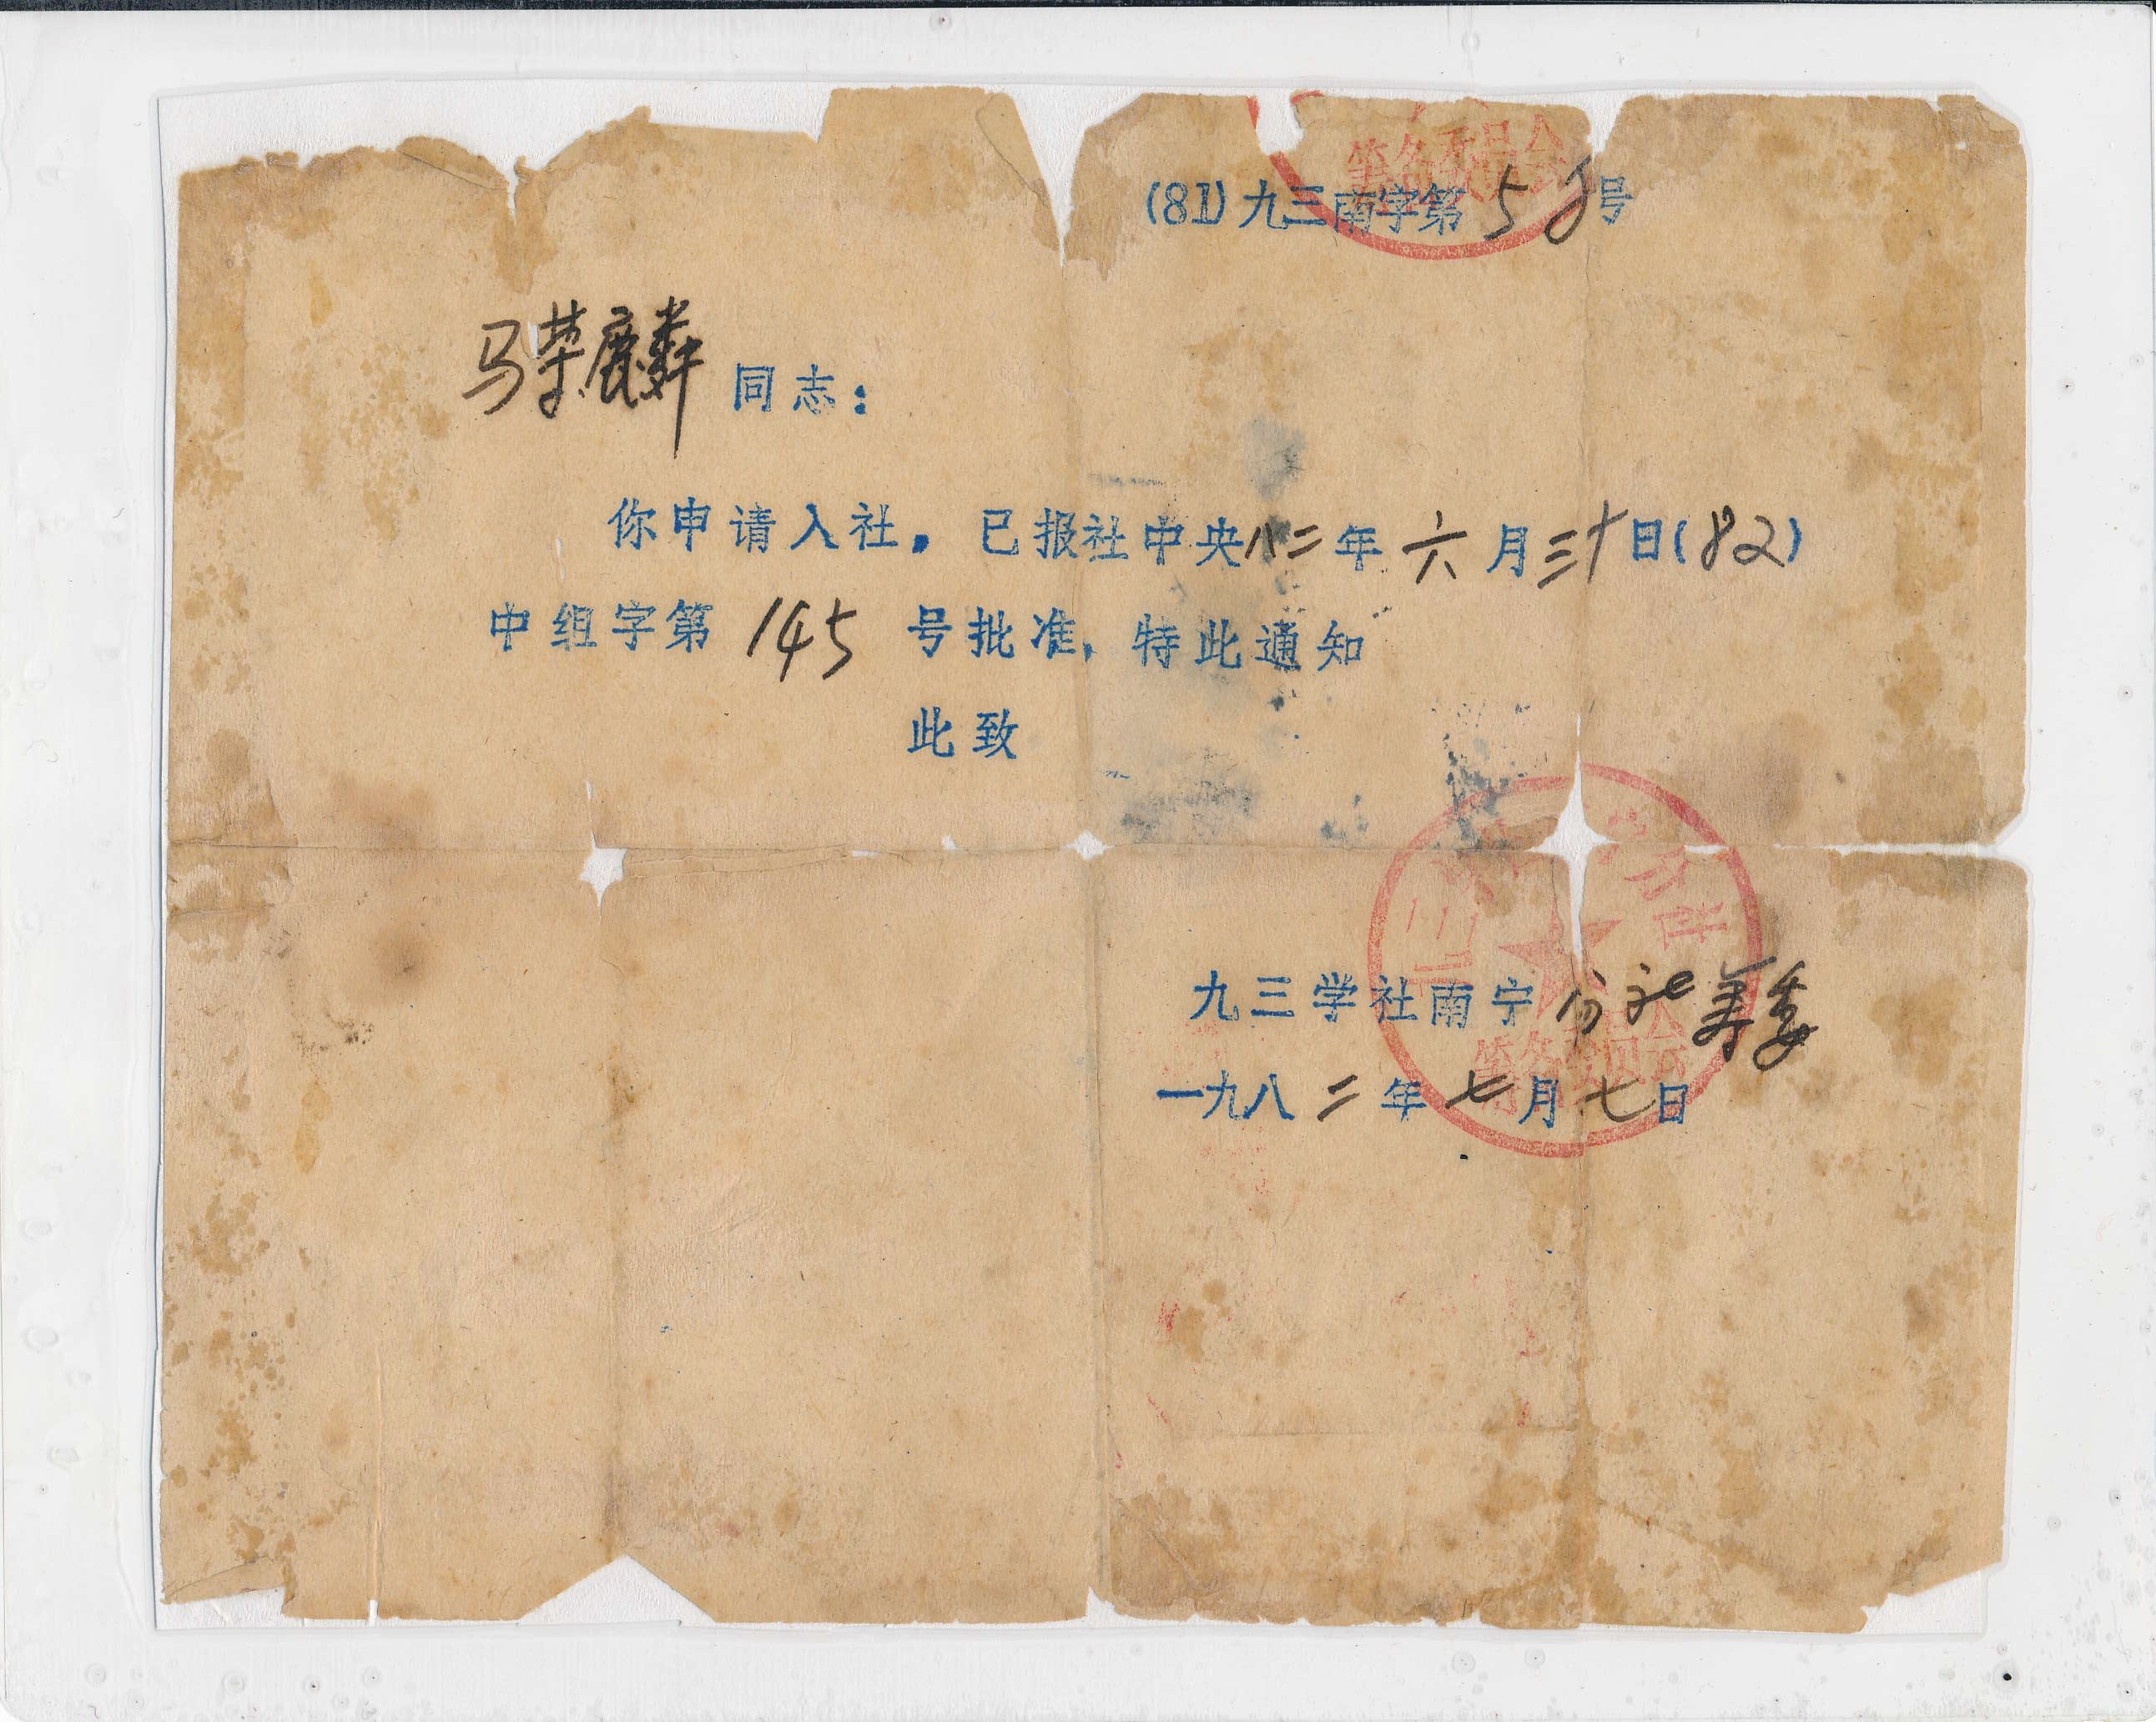 筹备委员会
(81)九三南字第58号
马荣麟同志：
你申请入社，已报社中央八二年六月三十日(82)
中组字第145号批准，特此通知
此致
九三学社南宁分社筹委
筹备委员会
一九八二年七月七日